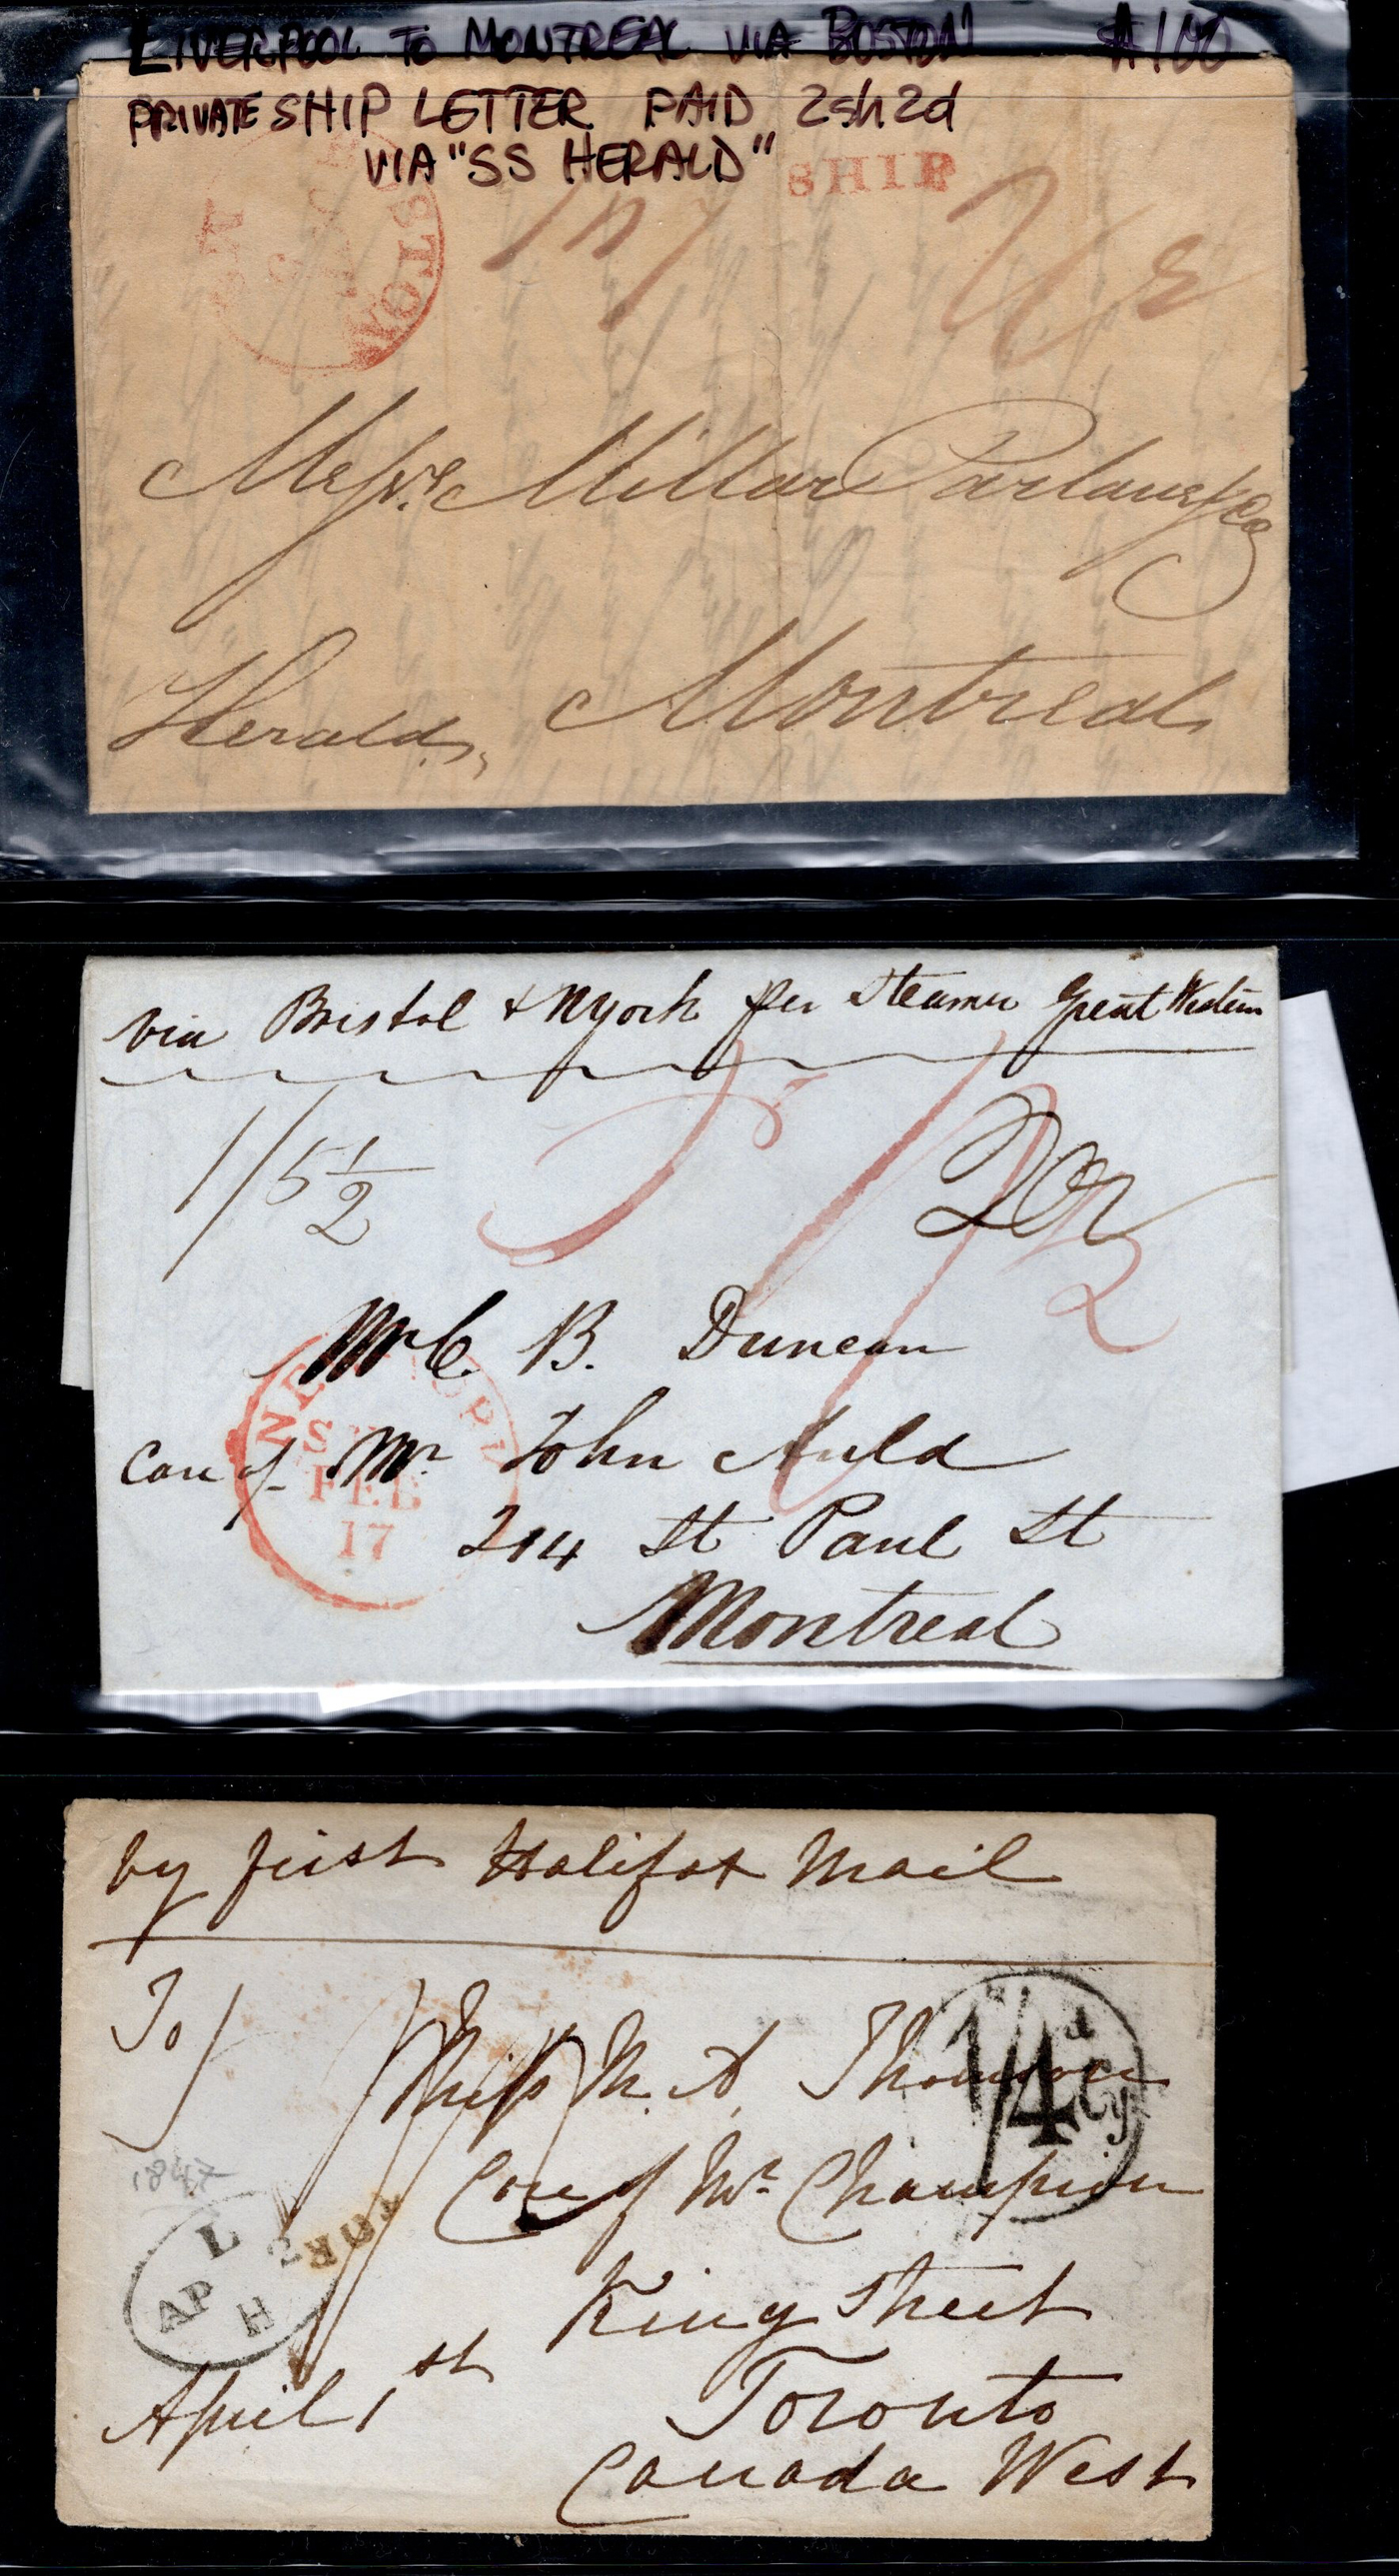 LIVERPOOL TO MONTREAL VIA BOSTON $100
PRIVATE SHIP LETTER PAID 2sh2d
VIA "SS HERALD"
SHIP
BOSTON
Messrs. Millar Parlane & Co
Herald, Montreal
via Bristol & NYork per Steamer Great Western
1/5 1/2
Mr C. B. Duncan
Care of Mr John Auld
214 St Paul St
Montreal
NEW YORK
FEB
17
by first Halifax Mail
To/ Miss M. A. Thomson
1/4d Cy
Care of Mr Champion
1847
L
AP H
King Street
April 1st Toronto
Canada West